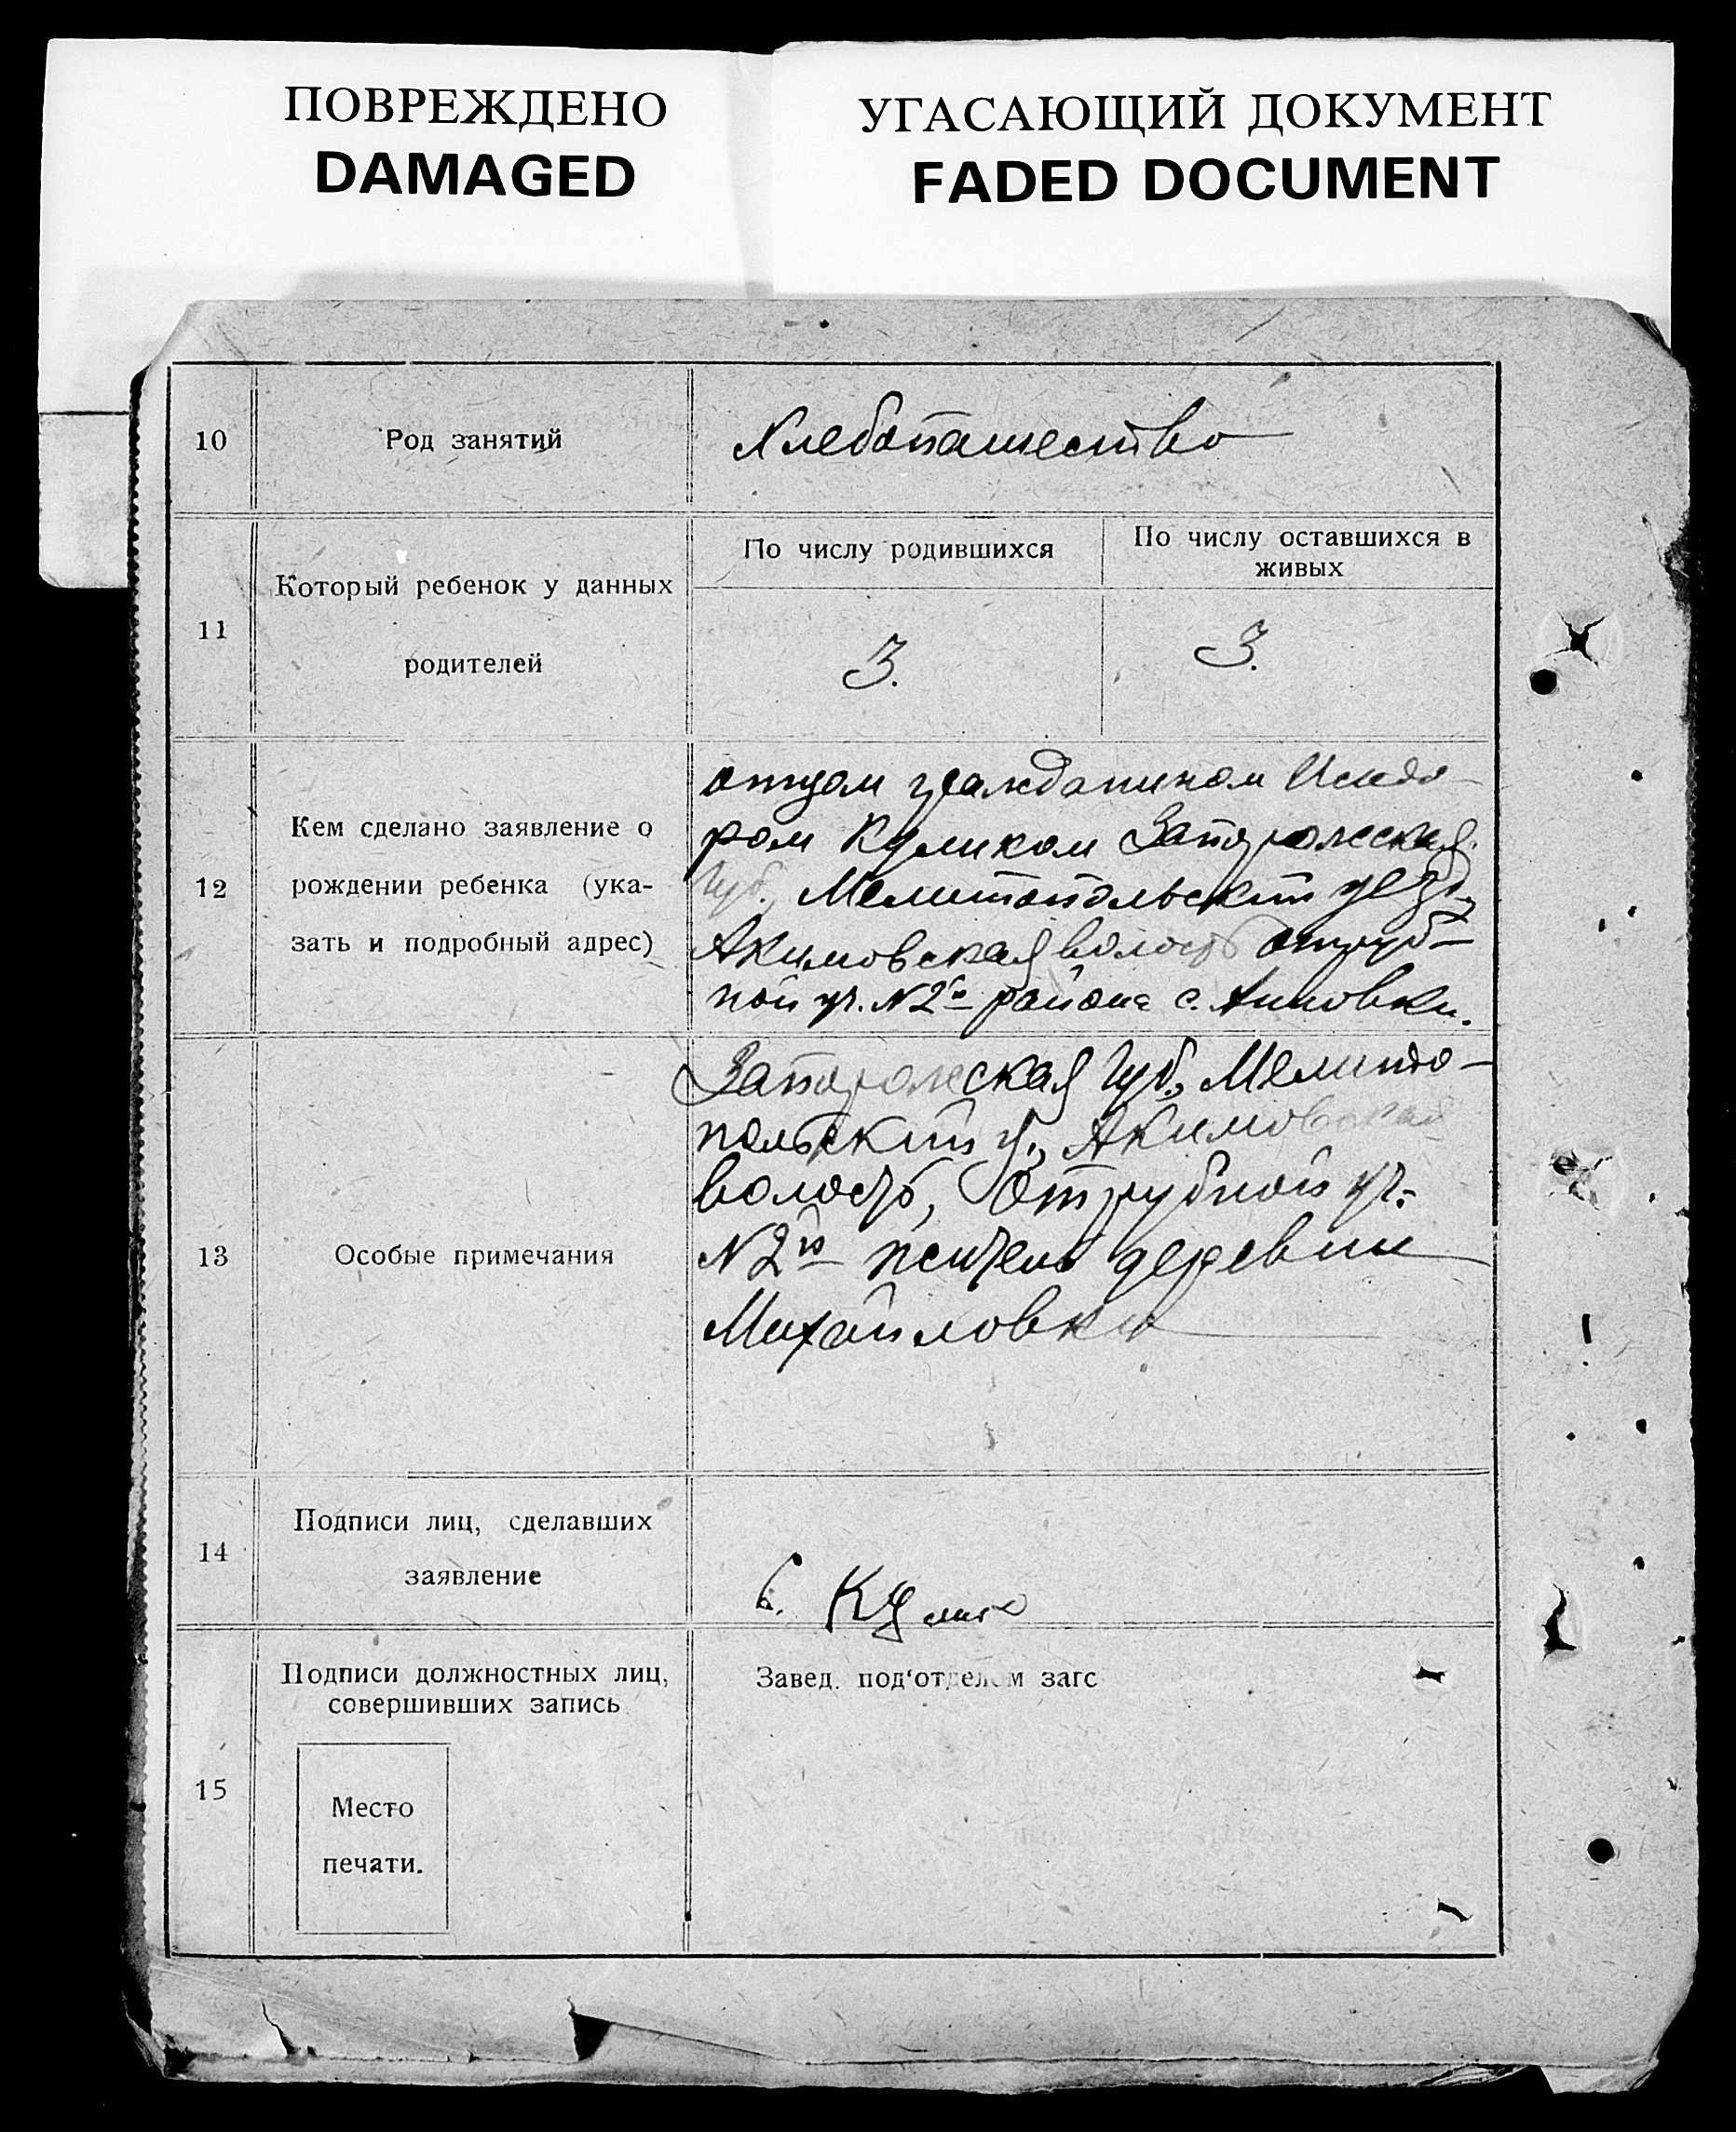 ПОВРЕЖДЕНО
DAMAGED
УГАСАЮЩИЙ ДОКУМЕНТ
FADED DOCUMENT
10
Род занятий
Хлебопашество
11
Который ребенок у данных
родителей
По числу родившихся
По числу оставшихся в
живых
3.
3.
12
Кем сделано заявление о
рождении ребенка (ука-
зать и подробный адрес)
отцом гражданином Исидо-
ром Куликом Запорожская
Губ., Мелитопольский уезд,
Акимовская волость отруб-
ной уч. №2й района с. Анновки.
13
Особые примечания
Запорожская Губ., Мелито-
польский у., Акимовская
волость, Отрубной уч.
№2й житель деревни
Михайловки
14
Подписи лиц, сделавших
заявление
Кулик
15
Подписи должностных лиц,
совершивших запись
Место
печати.
Завед. под'отделом загс